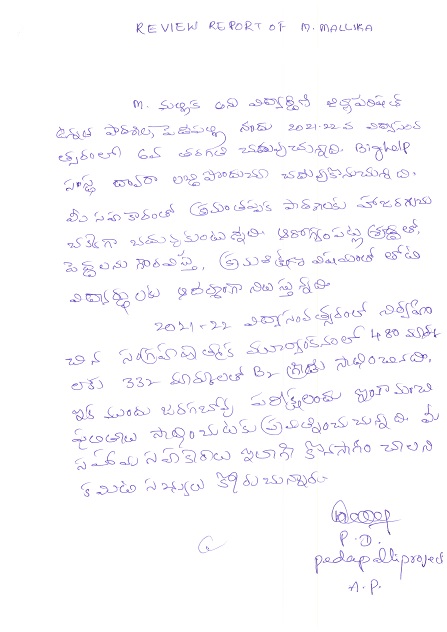 REVIEW REPORT OF M. MALLIKA
M. మల్లిక అను విద్యార్థిని జిల్లాపరిషత్
ఉన్నత పాఠశాల, పెదపల్లి నందు 2021-22వ విద్యాసంవ
త్సరంలో 6వ తరగతి చదువుచున్నది. Bighelp
సంస్థ ద్వారా లబ్ధి పొందుచూ చదువుకొనుచున్నది.
మీ సహకారంతో క్రమంతప్పక పాఠశాలకు హాజరగుచు
చక్కగా చదువుకుంటున్నది. ఆరోగ్యంపట్ల శ్రద్ధతో,
పెద్దలను గౌరవిస్తూ, క్రమశిక్షణ విషయంలో తోటి
విద్యార్థులకు ఆదర్శంగా నిలుస్తున్నది
2021-22 విద్యాసంవత్సరంలో నిర్వహిం
చిన సంగ్రహణాత్మక మూల్యాంకనంలో 480 మార్కు
లకు 332 మార్కులతో B2 గ్రేడు సాధించినది.
ఇక ముందు జరగబోవు పరీక్షలందు ఇంకా మంచి
ఫలితాలు సాధించుటకు ప్రయత్నించుచున్నది. మీ
సహాయ సహకారాలు ఇలాగే కొనసాగించాలని
కమిటి సభ్యులు కోరుచున్నారు.
P.D.
pedapalliproject
A.P.